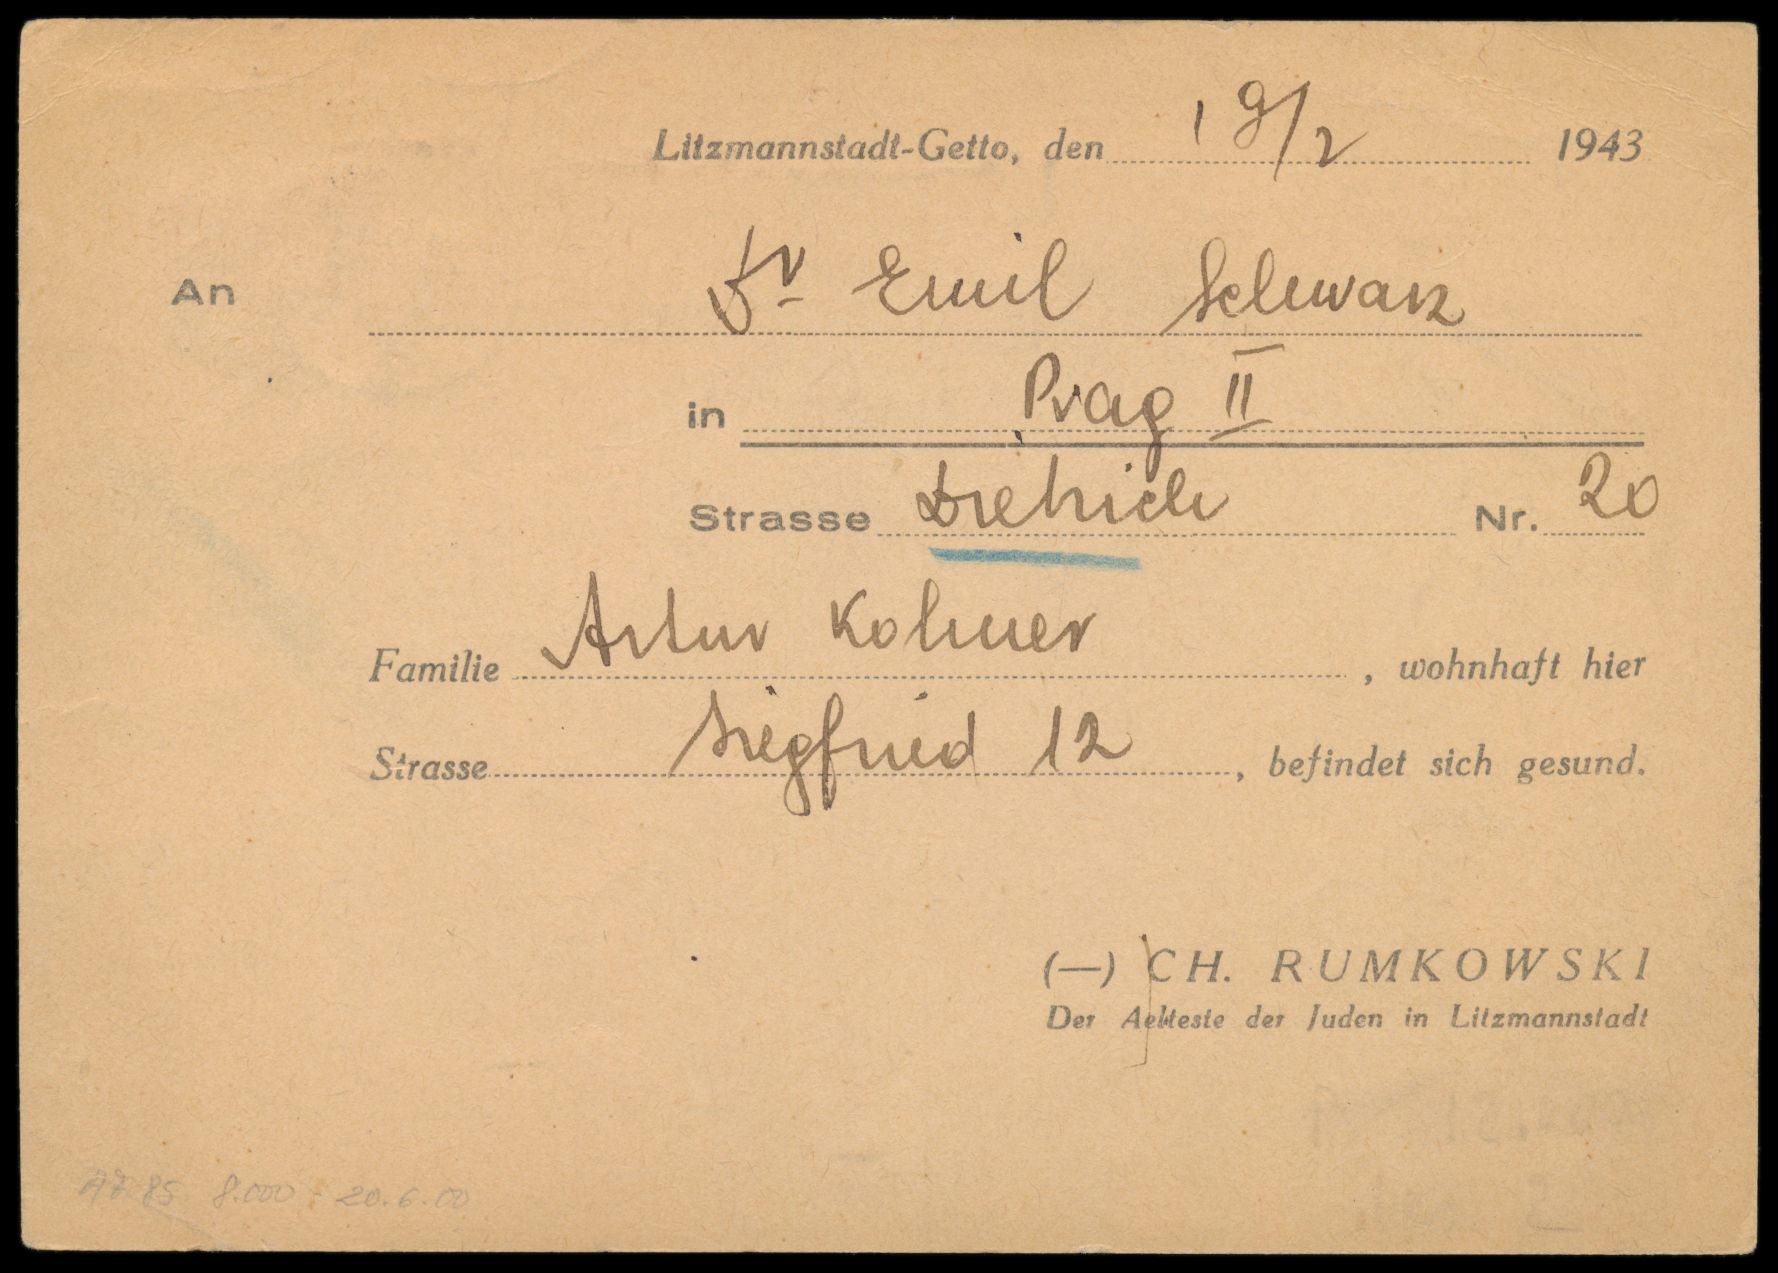 Litzmannstadt-Getto, den 19/2 1943
An Dr Emil Schwarz
in Prag II
Strasse Dietrich Nr. 20
Familie Artur Kolmer, wohnhaft hier
Strasse Siegfried 12, befindet sich gesund.
(—) CH. RUMKOWSKI
Der Aelteste der Juden in Litzmannstadt
85 8.000 20.6.00